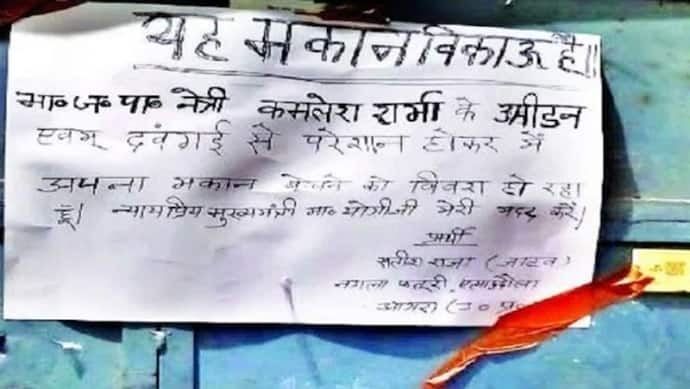 यह मकान बिकाऊ है॥
भा॰ज॰पा॰ नेत्री कमलेश शर्मा के उत्पीडन
एवम् दबंगई से परेशान होकर मैं
अपना मकान बेचने को विवश हो रहा
हूँ। न्यायप्रिय मुख्यमंत्री मा॰ योगीजी मेरी मदद करें।
प्रार्थी
सतीश राजा (जाटव)
नगला फतूरी, एत्माद्दौला
आगरा (उ॰ प्र॰